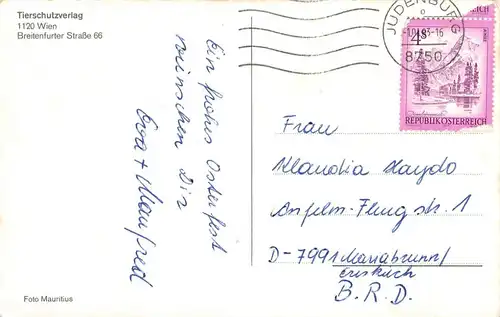 Tierschutzverlag
1120 Wien
Breitenfurter Straße 66
JUDENBURG
83-16
8750
4 S
REPUBLIK ÖSTERREICH
Ein frohes Osterfest
wünschen Dir
Eva + Manfred
Frau
Klaudia Haydo
Anselm-Flug str. 1
D-7991 Mariabrunn/
Eriskirch
B.R.D.
Foto Mauritius